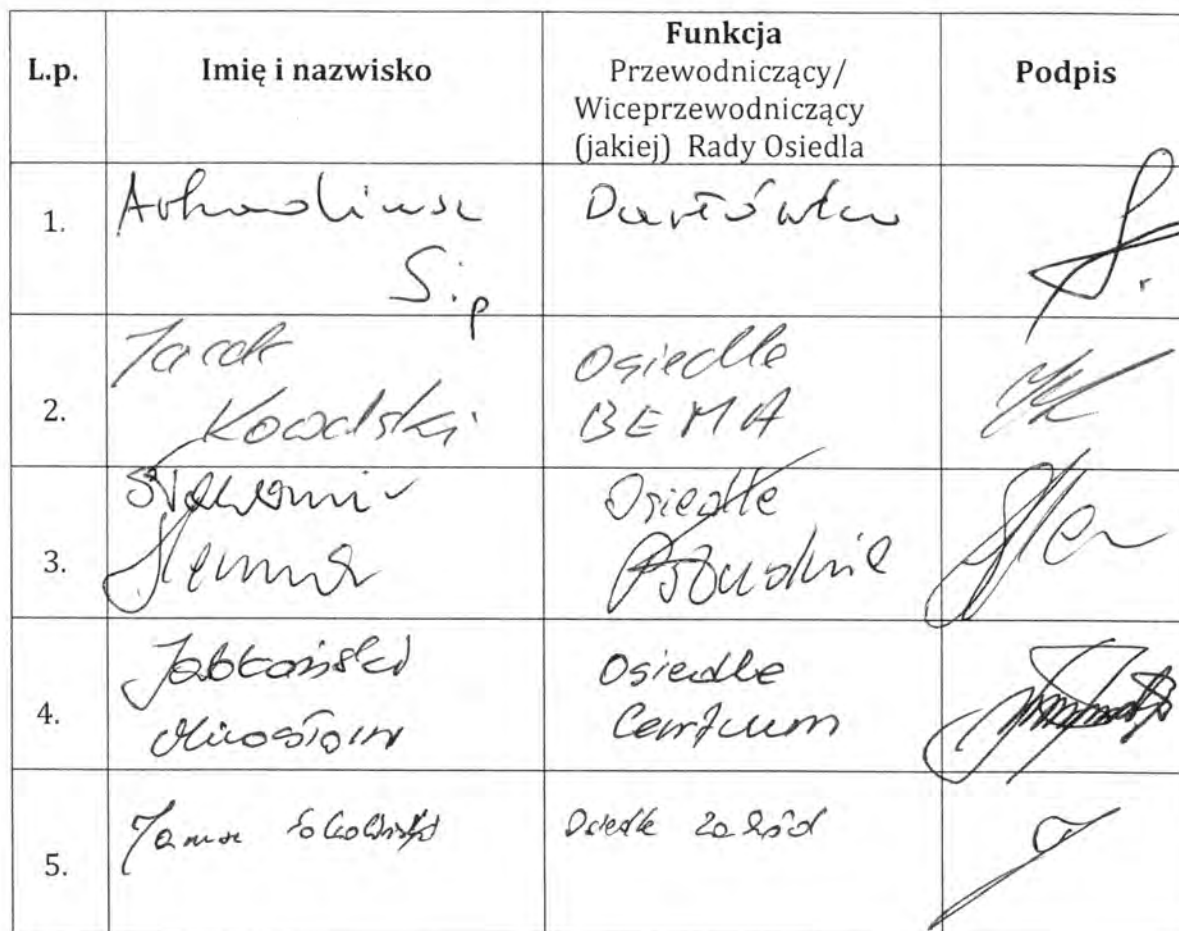 L.p.
Imię i nazwisko
Funkcja
Przewodniczący/
Wiceprzewodniczący
(jakiej) Rady Osiedla
Podpis
1.
Arkadiusz
Sip
Darłówko
2.
Jacek
Kowalski
Osiedle
BEMA
3.
Sławomir
Osiedle
Południe
4.
Jabłoński
Mirosław
Osiedle
Centrum
5.
Janusz
Osiedle Zachód